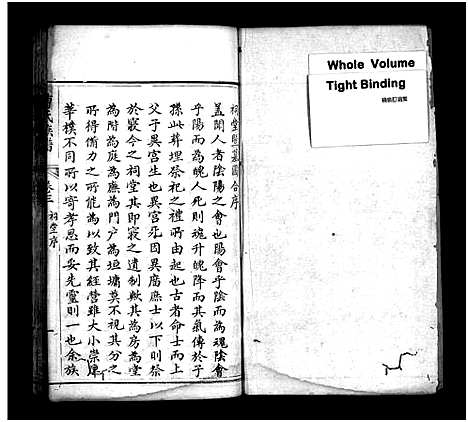 祠堂與墓圖合序
蓋聞人者陰陽之會也陽會乎陰而為魂陰會
乎陽而為魄人死則魂升魄降而其氣傳於子
孫此葬埋祭祀之禮所由起也古者命士而上
父子異宮生也異宮死因異廟庶士以下則祭
於寢今之祠堂其即寢之遺制歟其為房為堂
為階為庭為廡為門戶為垣墉莫不視其分之
所得備力之所能為以致其經營雖大小崇庳
華樸不同所以寄孝思而妥先靈則一也余族
氏族譜
卷三
祠堂序
一
Whole Volume
Tight Binding